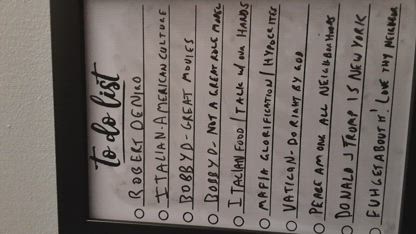 to do list
ROBERT DENIRO
ITALIAN-AMERICAN CULTURE
BOBBY D-GREAT MOVIES
BOBBY D-NOT A GREAT ROLE MODEL
ITALIAN FOOD/TALK W/ OUR HANDS
MAFIA GLORIFICATION/HYPOCRITES
VATICAN-DO RIGHT BY GOD
PEACE AMONG ALL NEIGHBORHOODS
DONALD J TRUMP IS NEW YORK
FUHGETABOUTIT! LOVE THY NEIGHBOR